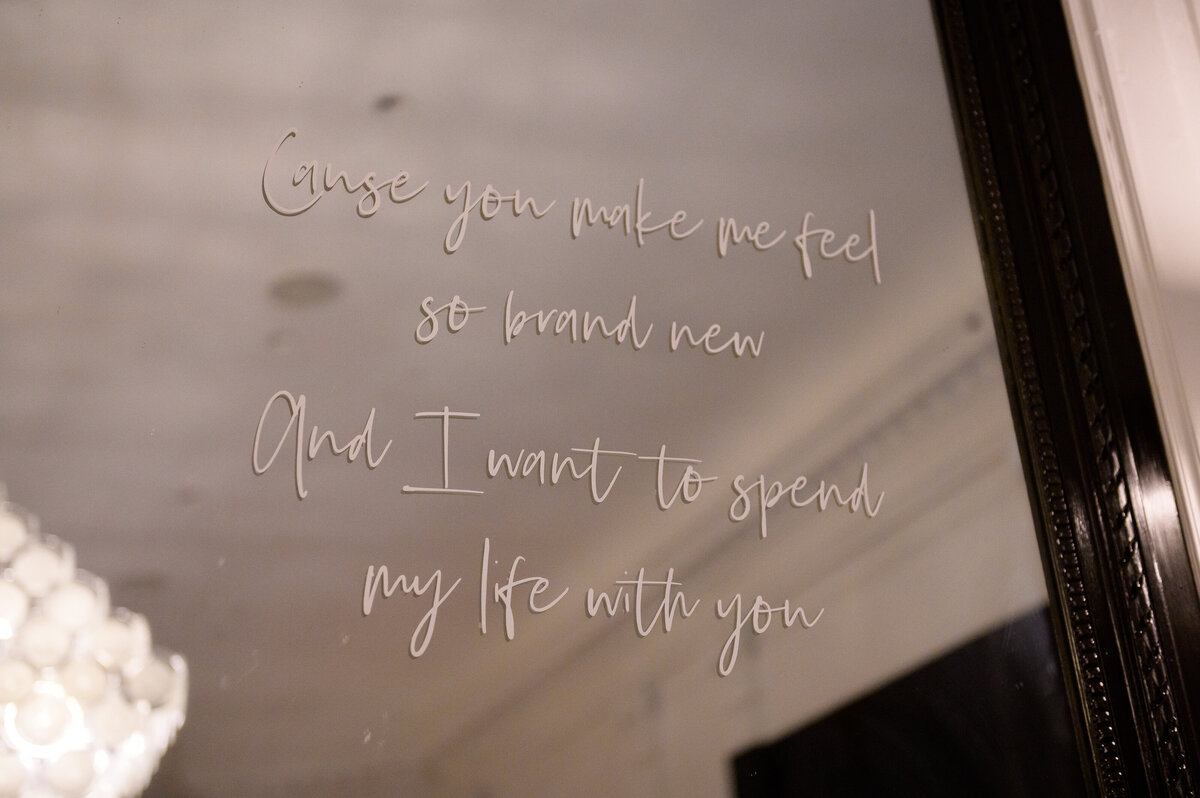 Cause you make me feel
so brand new
And I want to spend
my life with you